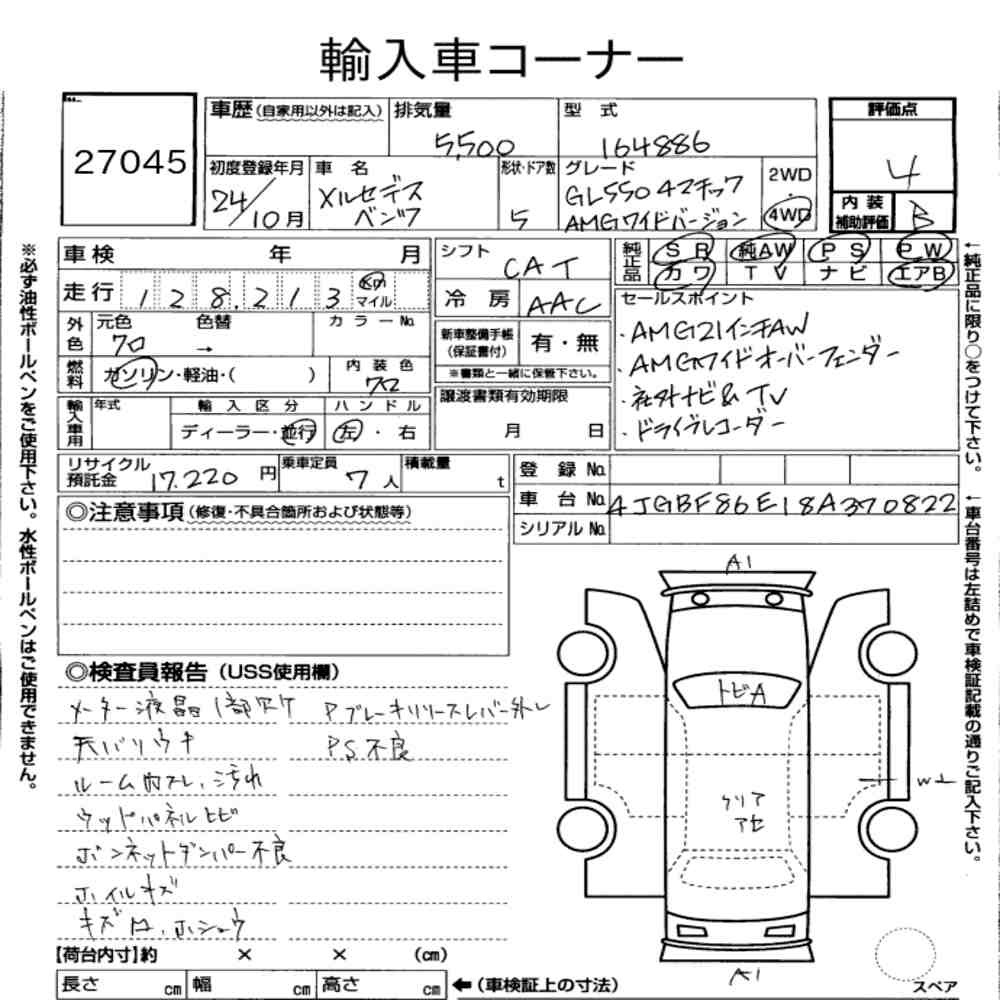 輸入車コーナー
27045
車歴(自家用以外は記入)
排気量
5,500
型 式
164886
評価点
4
初度登録年月
24/10月
車 名
メルセデス
ベンツ
形状・ドア数
5
グレード
GL550 4マチック
AMGワイドバージョン
2WD
4WD
内装
補助評価
B
車検 年 月
走行 128.213 Km マイル
外色
元色
クロ
色替
→
カラーNo.
燃料
ガソリン・軽油・( )
内装色
クロ
輸入車用
年式
輸入区分
ディーラー・並行
ハンドル
左・右
シフト
CAT
冷房
AAC
新車整備手帳
(保証書付)
有・無
※書類と一緒に保管下さい。
譲渡書類有効期限
月 日
純正品
SR 純AW PS PW
カワ TV ナビ エアB
セールスポイント
・AMG21インチAW
・AMGワイドオーバーフェンダー
・社外ナビ&TV
・ドライブレコーダー
リサイクル
預託金
17.220 円
乗車定員
7人
積載量
t
登録No.
車台No.
4JGBF86E18A370822
シリアルNo.
◎注意事項(修復・不具合箇所および状態等)
◎検査員報告(USS使用欄)
メーター液晶1部欠ケ Pブレーキリリースレバー外レ
天バリウキ PS不良
ルーム内スレ、汚れ
ウッドパネルヒビ
ボンネットダンパー不良
ホイルキズ
キズ凹、ホシュウ
A1
トビA
クリア
アセ
W1
A1
スペア
【荷台内寸】約 × × (cm)
長さ cm 幅 cm 高さ cm
←(車検証上の寸法)
※必ず油性ボールペンをご使用下さい。水性ボールペンはご使用できません。
←純正品に限り○をつけて下さい。
←車台番号は左詰めで車検証記載の通りご記入下さい。